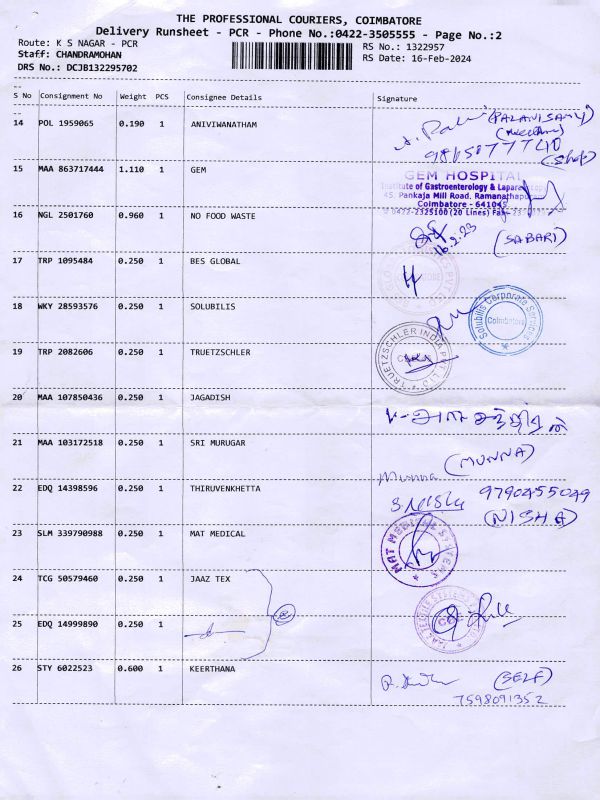 THE PROFESSIONAL COURIERS, COIMBATORE
Delivery Runsheet - PCR - Phone No.:0422-3505555 - Page No.:2
Route: K S NAGAR - PCR
RS No.: 1322957
Staff: CHANDRAMOHAN
RS Date: 16-Feb-2024
DRS No.: DCJB132295702
S No Consignment No Weight PCS Consignee Details Signature
14 POL 1959065 0.190 1 ANIVIWANATHAM
(PALANISAMY)
9865077740
(Shop)
15 MAA 863717444 1.110 1 GEM
GEM HOSPITAL
Institute of Gastroenterology &
45, Pankaja Mill Road, Ramanathapuram
Coimbatore - 641045
0422-2325100 (20 Lines)
16 NGL 2501760 0.960 1 NO FOOD WASTE
16.2.23
(SABARI)
17 TRP 1095484 0.250 1 BES GLOBAL
18 WKY 28593576 0.250 1 SOLUBILIS
Solubilis Corporate Services
Coimbatore
19 TRP 2082606 0.250 1 TRUETZSCHLER
TRUETZSCHLER INDIA PVT. LTD
20 MAA 107850436 0.250 1 JAGADISH
21 MAA 103172518 0.250 1 SRI MURUGAR
Munna (MUNNA)
22 EDQ 14398596 0.250 1 THIRUVENKHETTA
9790455049
(NISHA)
23 SLM 339790988 0.250 1 MAT MEDICAL
MAT MEDICAL SYSTEMS
24 TCG 50579460 0.250 1 JAAZ TEX
2
25 EDQ 14999890 0.250 1
26 STY 6022523 0.600 1 KEERTHANA
(SELF)
7598091352